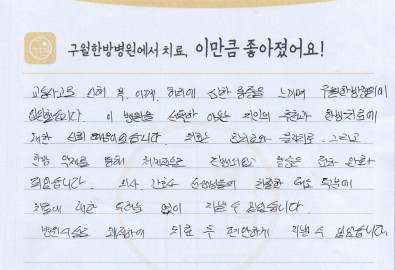 구월한방병원에서 치료, 이만큼 좋아졌어요!
교통사고로 인해 목, 어깨, 허리에 심한 통증을 느끼며 구월한방병원에
입원했습니다. 이 병원을 선택한 이유는 지인의 추천과 한방치료에
대한 신뢰 때문이었습니다. 치료는 추나요법과 물리치료, 그리고
한방 약제를 통해 체계적으로 진행되었고 통증은 점차 완화
되었습니다. 의사, 간호사 선생님들의 친절한 태도 덕분에
치료에 대한 두려움 없이 지낼 수 있었습니다.
병원시설도 쾌적하여 치료 후 편안하게 지낼 수 있었습니다.